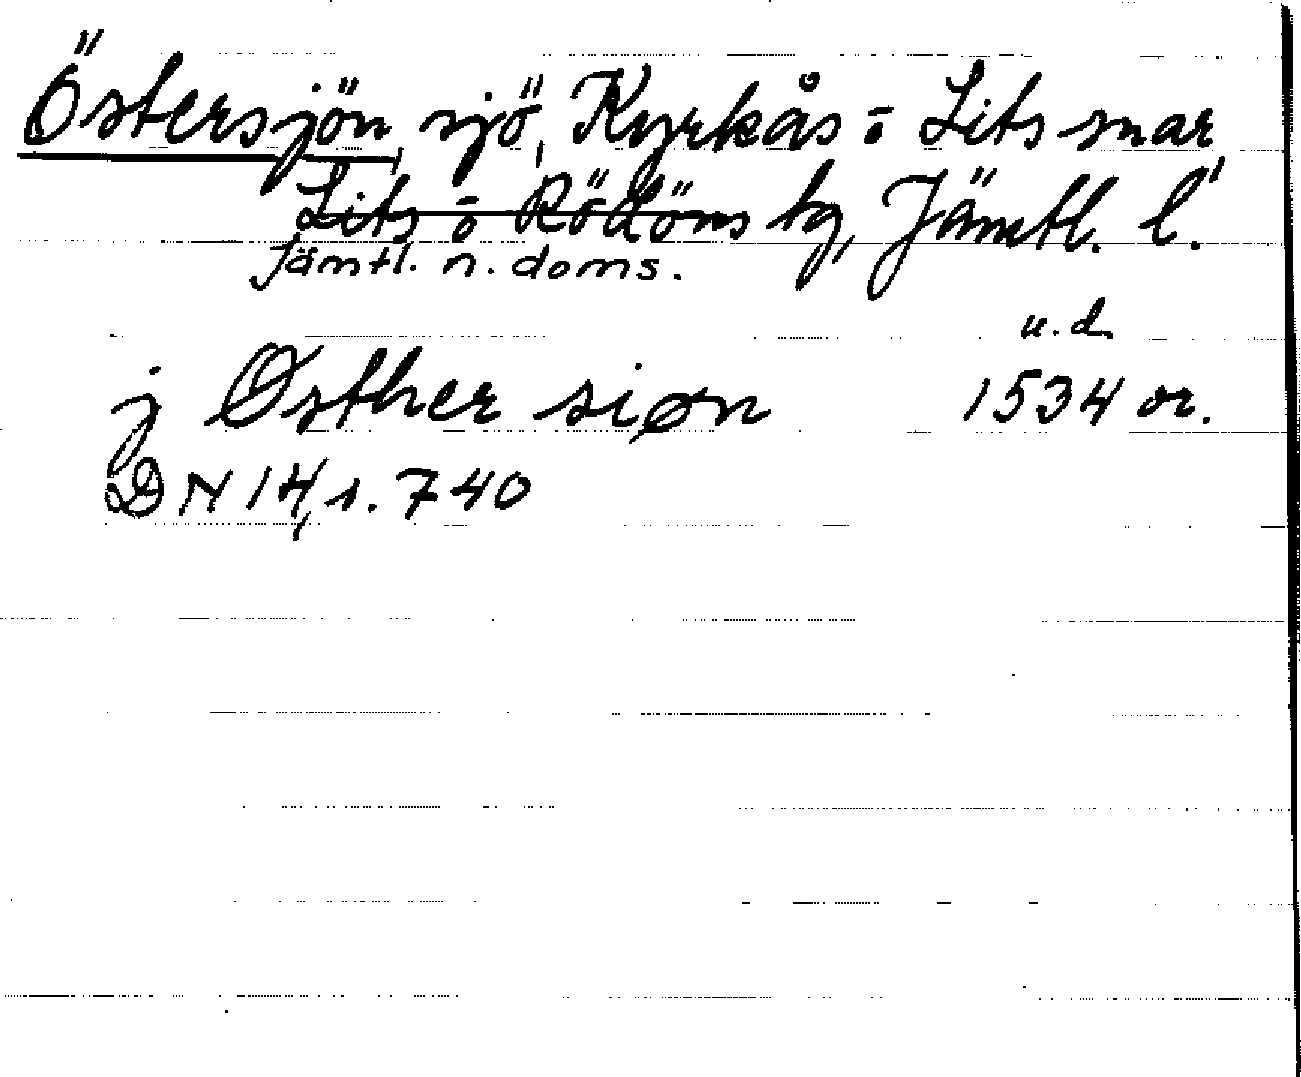 Östersjön, sjö, Kyrkås o Lits snar
Lits o Rödöns tg, Jämtl. l.
Jämtl. n. doms.
u. d.
j Østher siøn 1534 or.
DN 14, s. 740